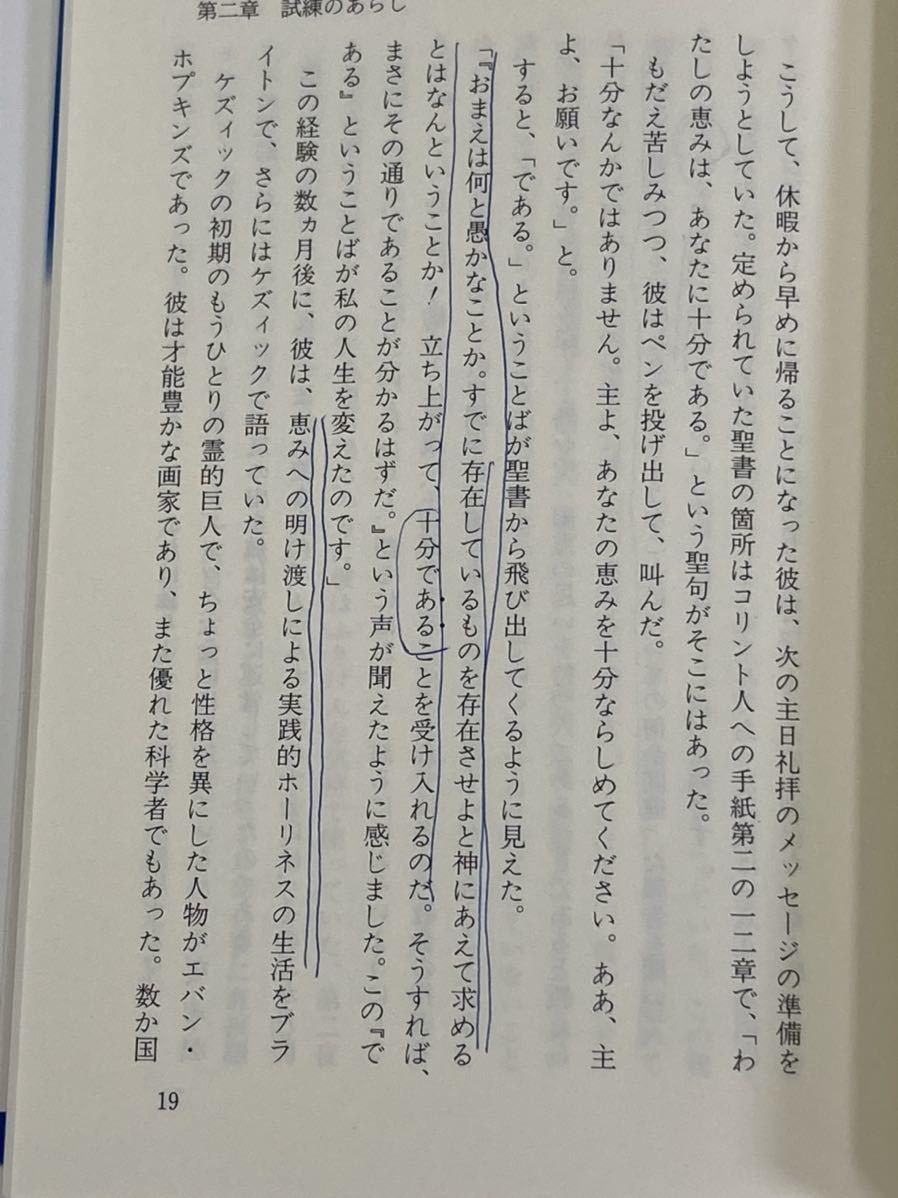 第二章　試練のあらし
こうして、休暇から早めに帰ることになった彼は、次の主日礼拝のメッセージの準備を
しようとしていた。定められていた聖書の箇所はコリント人への手紙第二の一二章で、「わ
たしの恵みは、あなたに十分である。」という聖句がそこにはあった。
もだえ苦しみつつ、彼はペンを投げ出して、叫んだ。
「十分なんかではありません。主よ、あなたの恵みを十分ならしめてください。ああ、主
よ、お願いです。」と。
すると、「である。」ということばが聖書から飛び出してくるように見えた。
「『おまえは何と愚かなことか。すでに存在しているものを存在させよと神にあえて求める
とはなんということか！　立ち上がって、十分であることを受け入れるのだ。そうすれば、
まさにその通りであることが分かるはずだ。』という声が聞えたように感じました。この『で
ある』ということばが私の人生を変えたのです。」
この経験の数ヵ月後に、彼は、恵みへの明け渡しによる実践的ホーリネスの生活をブラ
イトンで、さらにはケズィックで語っていた。
ケズィックの初期のもうひとりの霊的巨人で、ちょっと性格を異にした人物がエバン・
ホプキンズであった。彼は才能豊かな画家であり、また優れた科学者でもあった。数か国
19